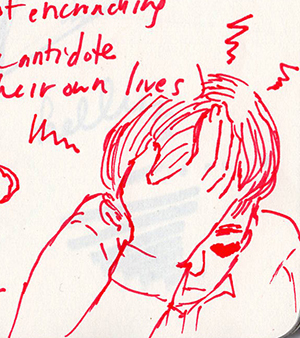 encroaching
antidote
heir own lives